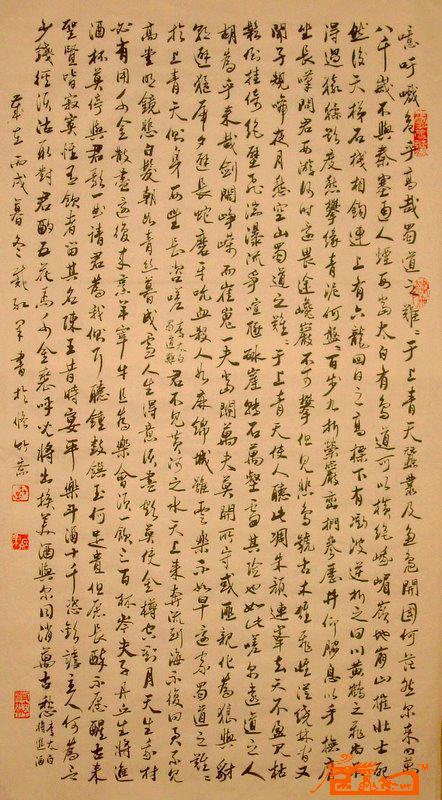 噫吁嚱危乎高哉蜀道之難難于上青天蠶叢及魚鳧開國何茫然尔来四萬
八千歲不與秦塞通人煙西當太白有鳥道可以橫絕峨嵋巔地崩山摧壯士死
然後天梯石棧相鉤連上有六龍回日之高標下有衝波逆折之回川黃鶴之飛尚不
得過猿猱欲度愁攀緣青泥何盤盤百步九折縈巖巒捫參歷井仰脅息以手撫膺
坐長嘆問君西遊何時還畏途巉巖不可攀但見悲鳥號古木雄飛雌從繞林間又
聞子規啼夜月愁空山蜀道之難難于上青天使人聽此凋朱顏連峯去天不盈尺枯
松倒挂倚絕壁飛湍瀑流爭喧豗砯崖轉石萬壑雷其險也如此嗟尔遠道之人
胡為乎来哉劍閣崢嶸而崔嵬一夫當關萬夫莫開所守或匪親化為狼與豺
朝避猛虎夕避長蛇磨牙吮血殺人如麻錦城雖雲樂不如早還家蜀道之難難
於上青天側身西望長咨嗟李太白蜀道難君不見黃河之水天上来奔流到海不復回君不見
高堂明鏡悲白髮朝如青絲暮成雪人生得意須盡歡莫使金樽空對月天生我材
必有用千金散盡還復来烹羊宰牛且為樂會須一飲三百杯岑夫子丹丘生將進
酒杯莫停與君歌一曲請君為我側耳聽鐘鼓饌玉何足貴但願長醉不願醒古来
聖賢皆寂寞惟有飲者留其名陳王昔時宴平樂斗酒十千恣歡謔主人何為言
少錢徑須沽取對君酌五花馬千金裘呼兒將出換美酒與尔同消萬古愁李太白將進酒
歲在丙戌暮冬戴紅軍書於竹齋